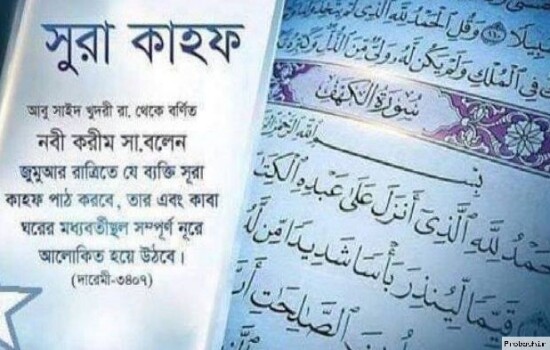 সুরা কাহফ
আবু সাইদ খুদরী রা. থেকে বর্ণিত
নবী করীম সা.বলেন
জুমুআর রাত্রিতে যে ব্যক্তি সূরা
কাহফ পাঠ করবে, তার এবং কাবা
ঘরের মধ্যবর্তীস্থল সম্পূর্ণ নূরে
আলোকিত হয়ে উঠবে।
(দারেমী-৩৪০৭)
سَبِيلًا ﴿١١٠﴾ وَقُلِ الْحَمْدُ لِلَّهِ الَّذِي لَمْ
فِي الْمُلْكِ وَلَمْ يَكُن لَّهُ وَلِيٌّ مِّنَ الذُّلِّ وَكَبِّرْهُ
سُورَةُ الْكَهْفِ
بِسْمِ اللَّهِ الرَّحْمَٰنِ
حَمْدُ لِلَّهِ الَّذِي أَنزَلَ عَلَىٰ عَبْدِهِ الْكِتَٰ
قَيِّمًا لِّيُنذِرَ بَأْسًا شَدِيدًا مِّن لَّدُ
الصَّٰلِحَٰتِ أَنَّ
Probashir